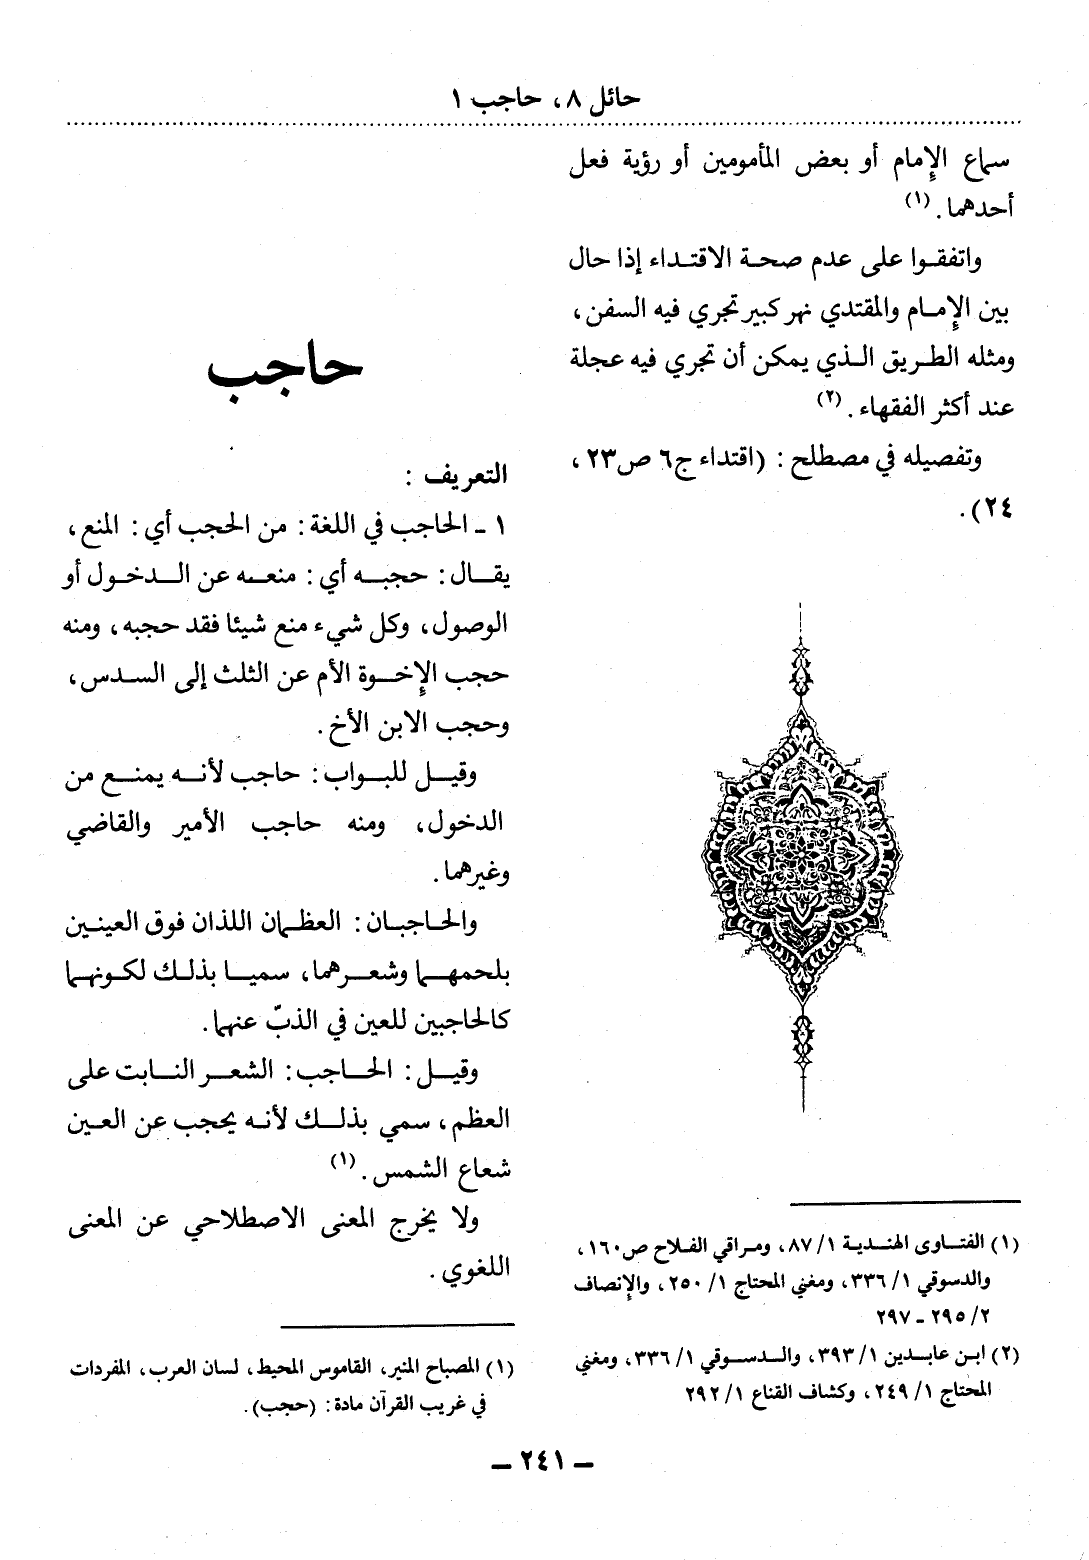 حائل ٨، حاجب ١
سماع الإمام أو بعض المأمومين أو رؤية فعل
أحدهما. (١)
واتفقوا على عدم صحة الاقتداء إذا حال
بين الإمام والمقتدي نهر كبير تجري فيه السفن،
ومثله الطريق الذي يمكن أن تجري فيه عجلة
عند أكثر الفقهاء. (٢)
وتفصيله في مصطلح: (اقتداء ج٦ ص٢٣،
٢٤).
(١) الفتاوى الهندية ١/ ٨٧، ومراقي الفلاح ص١٦٠،
والدسوقي ١/ ٣٣٦، ومغني المحتاج ١/ ٢٥٠، والإنصاف
٢/ ٢٩٥ ـ ٢٩٧
(٢) ابن عابدين ١/ ٣٩٣، والدسوقي ١/ ٣٣٦، ومغني
المحتاج ١/ ٢٤٩، وكشاف القناع ١/ ٢٩٢
حاجب
التعريف :
١ ـ الحاجب في اللغة: من الحجب أي: المنع،
يقال: حجبه أي: منعه عن الدخول أو
الوصول، وكل شيء منع شيئا فقد حجبه، ومنه
حجب الإخوة الأم عن الثلث إلى السدس،
وحجب الابن الأخ.
وقيل للبواب: حاجب لأنه يمنع من
الدخول، ومنه حاجب الأمير والقاضي
وغيرهما.
والحاجبان: العظمان اللذان فوق العينين
بلحمهما وشعرهما، سميا بذلك لكونهما
كالحاجبين للعين في الذبّ عنهما.
وقيل: الحاجب: الشعر النابت على
العظم، سمي بذلك لأنه يحجب عن العين
شعاع الشمس. (١)
ولا يخرج المعنى الاصطلاحي عن المعنى
اللغوي.
(١) المصباح المنير، القاموس المحيط، لسان العرب، المفردات
في غريب القرآن مادة: (حجب).
ـ ٢٤١ ـ